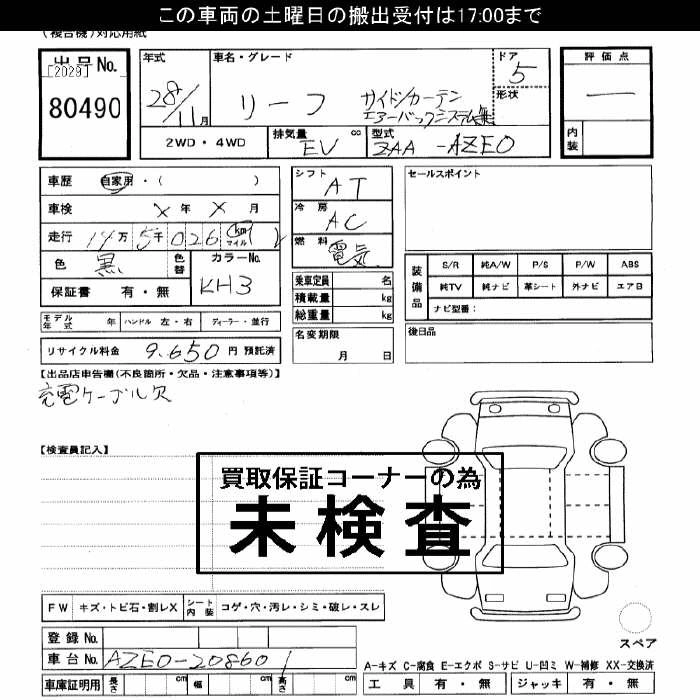 この車両の土曜日の搬出受付は17:00まで
(複合機)対応用紙
出品No.
[2029]
80490
年式
28/11月
車名・グレード
リーフ サイド/カーテン
エアーバックシステム無
ドア
5
形状
評価点
―
内装
2WD・4WD
排気量 cc
EV
型式
ZAA-AZEO
車歴 自家用・( )
車検 X 年 X 月
走行 14万5千026 km マイル
色 黒
色替
カラーNo.
KH3
保証書 有・無
シフト
AT
冷房
AC
燃料
電気
乗車定員 名
積載量 kg
総重量 kg
名変期限
月 日
セールスポイント
装備品
S/R 純A/W P/S P/W ABS
純TV 純ナビ 革シート 外ナビ エアB
ナビ型番:
後日品
モデル年式 年 ハンドル 左・右 ディーラー・並行
リサイクル料金 9.650 円 預託済
【出品店申告欄(不良箇所・欠品・注意事項等)】
充電ケーブル欠
【検査員記入】
買取保証コーナーの為
未検査
FW キズ・トビ石・割レX シート内装 コゲ・穴・汚レ・シミ・破レ・スレ
スペア
登録No.
車台No. AZEO-208601
車庫証明用 長さ cm 幅 cm 高さ cm
A-キズ C-腐食 E-エクボ S-サビ U-凹ミ W-補修 XX-交換済
工具 有・無 ジャッキ 有・無